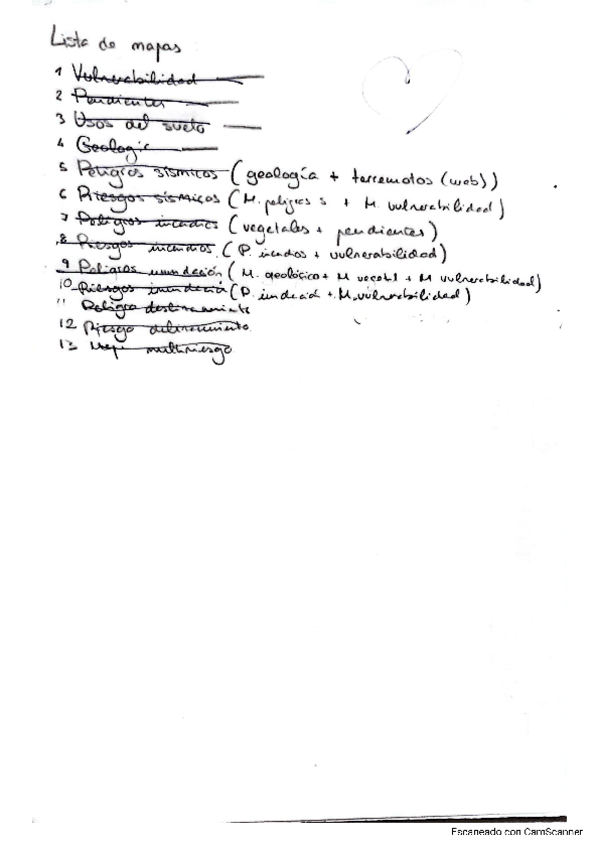 Lista de mapas
1 Vulnerabilidad
2 Pendientes
3 Usos del suelo
4 Geologic
5 Peligros sísmicos (geología + terremotos (web))
6 Riesgos sísmicos (M. peligros s + M. vulnerabilidad)
7 Peligros incendios (vegetales + pendientes)
8 Riesgos incendios (P. incendios + vulnerabilidad)
9 Peligros inundación (M. geológico + M vegetal + M vulnerabilidad)
10 Riesgos inundación (P. inundación + M. vulnerabilidad)
11 Peligro deslizamiento
12 Riesgo deslizamiento
13 Mapa multirriesgo
Escaneado con CamScanner